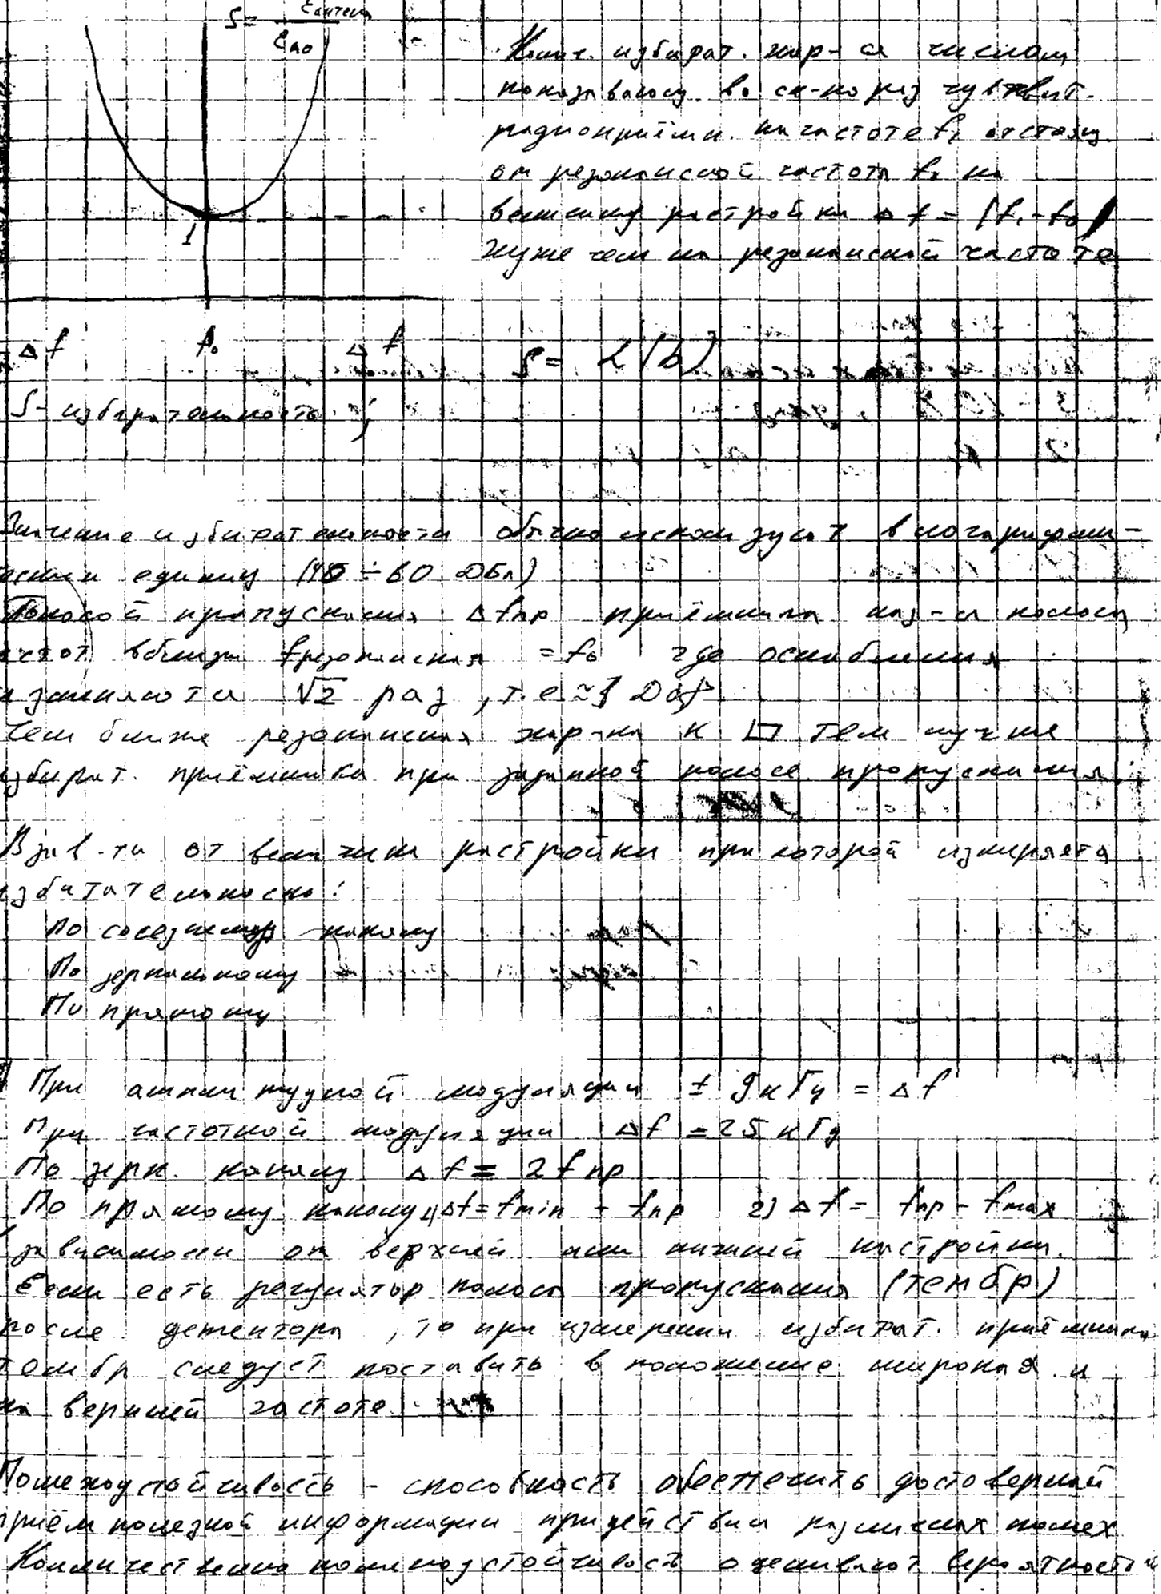 S = 
E A0
Колич. избират. хар-ся числом
показывающ. во ск-ко раз чувствит.
радиоприёмн. на частоте f1 отстоящ.
от резонансной частоты f0 на
величину растройки Δf = |f1 - f0|
хуже чем на резонансной частоте
1
Δf f0 Δf
S =
S - избирательность
Значение избирательности обычно используют в логарифми-
еских единиц (10 ÷ 60 Дбл)
Полосой пропускания Δfпр приёмника наз-ся полоса
астот вблизи fрезонансная = f0 где ослабления
√2 раз, т.е ≈ 3 Дбл
Чем ближе резонансная хар-ка к □ тем лучше
избират. приёмника при заданной полосе пропускания.
В зав-ти от величины растройки при которой измеряется
избитательность:
По соседнему каналу
По зеркальному
По прямому
При амплитудной модуляции ± 9 кГц = Δf
При частотной модуляции Δf = 25 кГц
По зерк. каналу Δf = 2 fпр
По прямому каналу 1) Δf = fmin - fпр 2) Δf = fпр - fmax
зависимости от верхней или нижней настройки.
Если есть регулятор полосы пропускания (тембр)
после детектора, то при измерении избират. приёмника
тембр следует поставить в положение широкая и
на верхней частоте.
Помехоустойчивость - способность обеспечить достоверный
приём полезной информации при действии различных помех
Количественно помехоустойчивость оценивают вероятностью